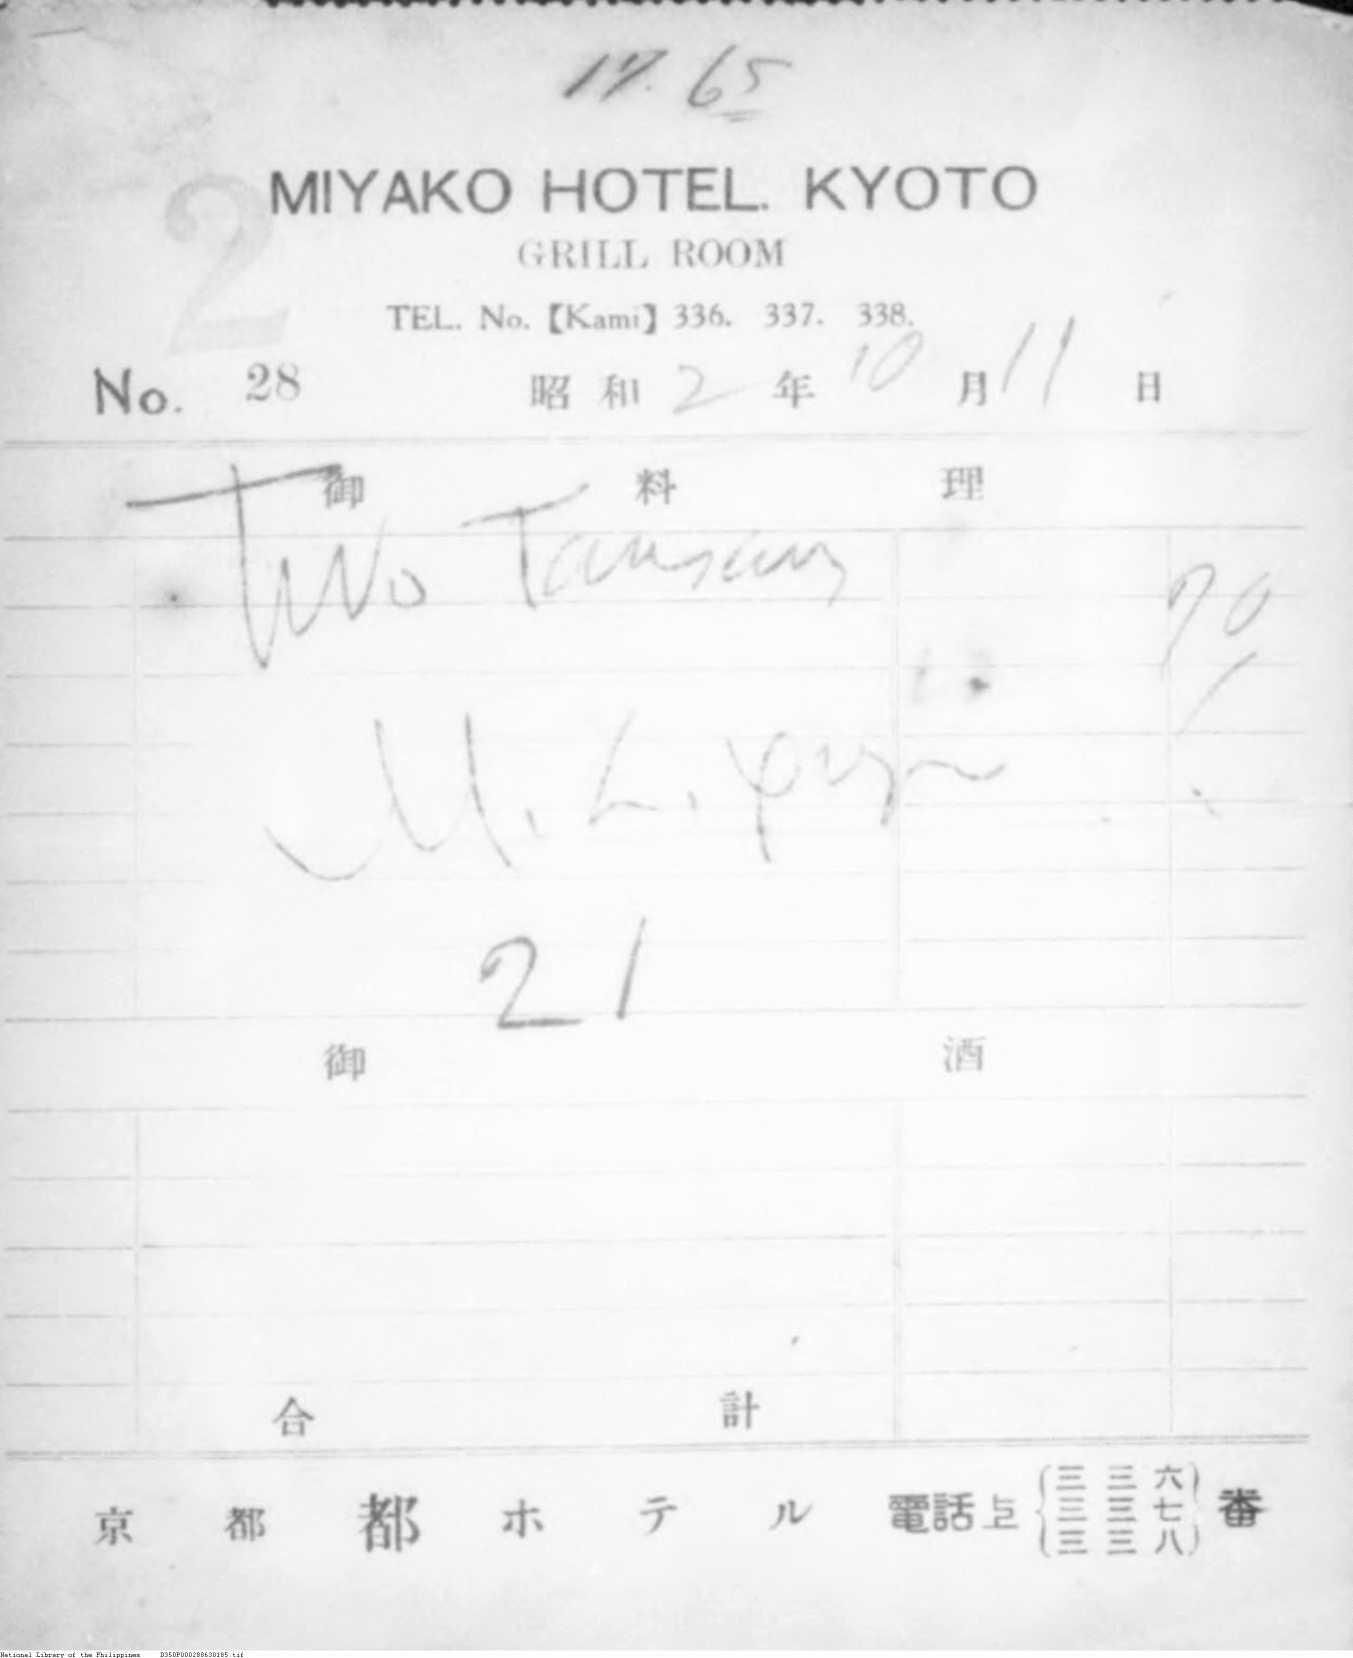 17.65
MIYAKO HOTEL. KYOTO
2
GRILL ROOM
TEL. No.【Kami】336. 337. 338.
No. 28 昭和 2 年 10 月 11 日
御 料 理
Two Tansans 70
M. L. Quezon
21
御 酒
合 計
京 都 都 ホ テ ル 電話上 {三三六 三三七 三三八} 番
National Library of the Philippines D350P000288630185.tif